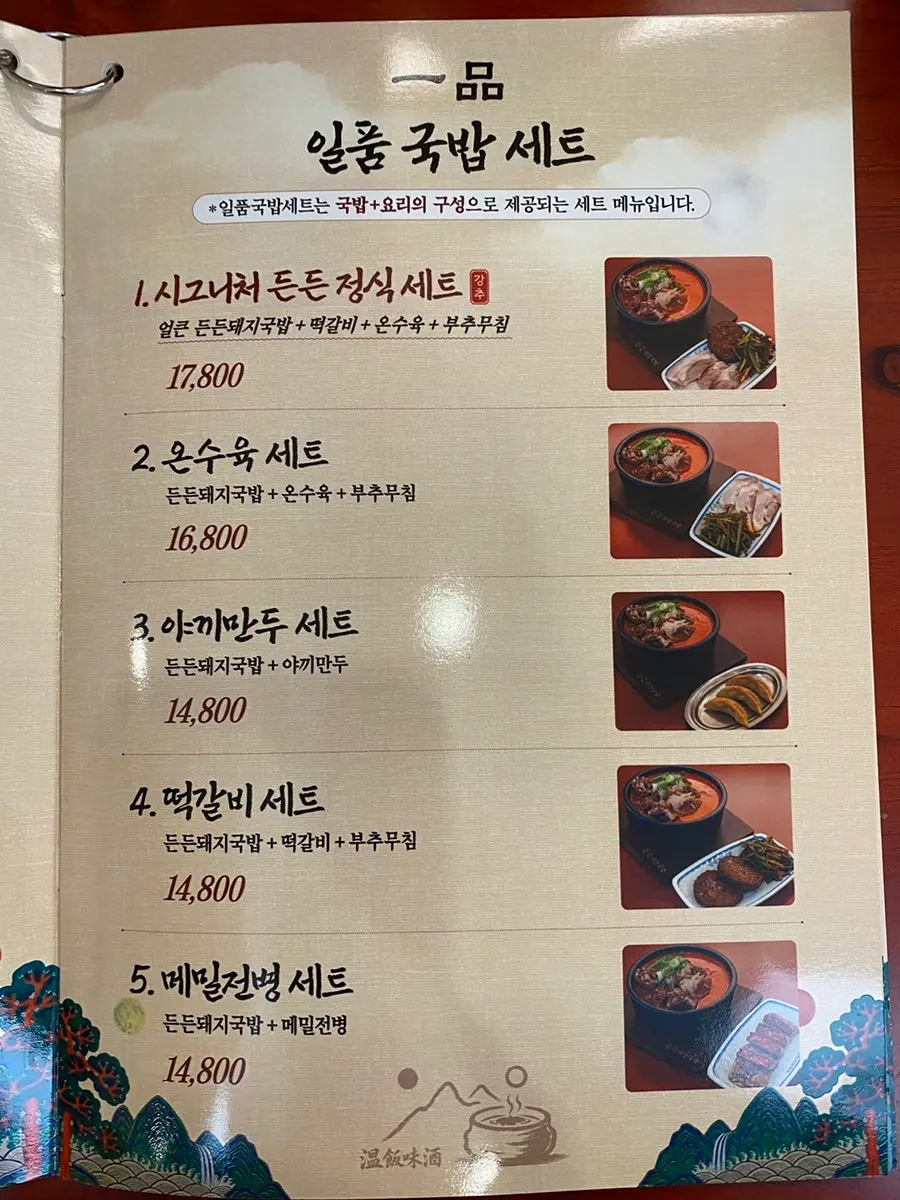 一品
일품 국밥 세트
*일품국밥세트는 국밥+요리의 구성으로 제공되는 세트 메뉴입니다.
1. 시그니처 든든 정식 세트 강추
얼큰 든든돼지국밥 + 떡갈비 + 온수육 + 부추무침
17,800
2. 온수육 세트
든든돼지국밥 + 온수육 + 부추무침
16,800
3. 야끼만두 세트
든든돼지국밥 + 야끼만두
14,800
4. 떡갈비 세트
든든돼지국밥 + 떡갈비 + 부추무침
14,800
5. 메밀전병 세트
든든돼지국밥 + 메밀전병
14,800
温飯味酒